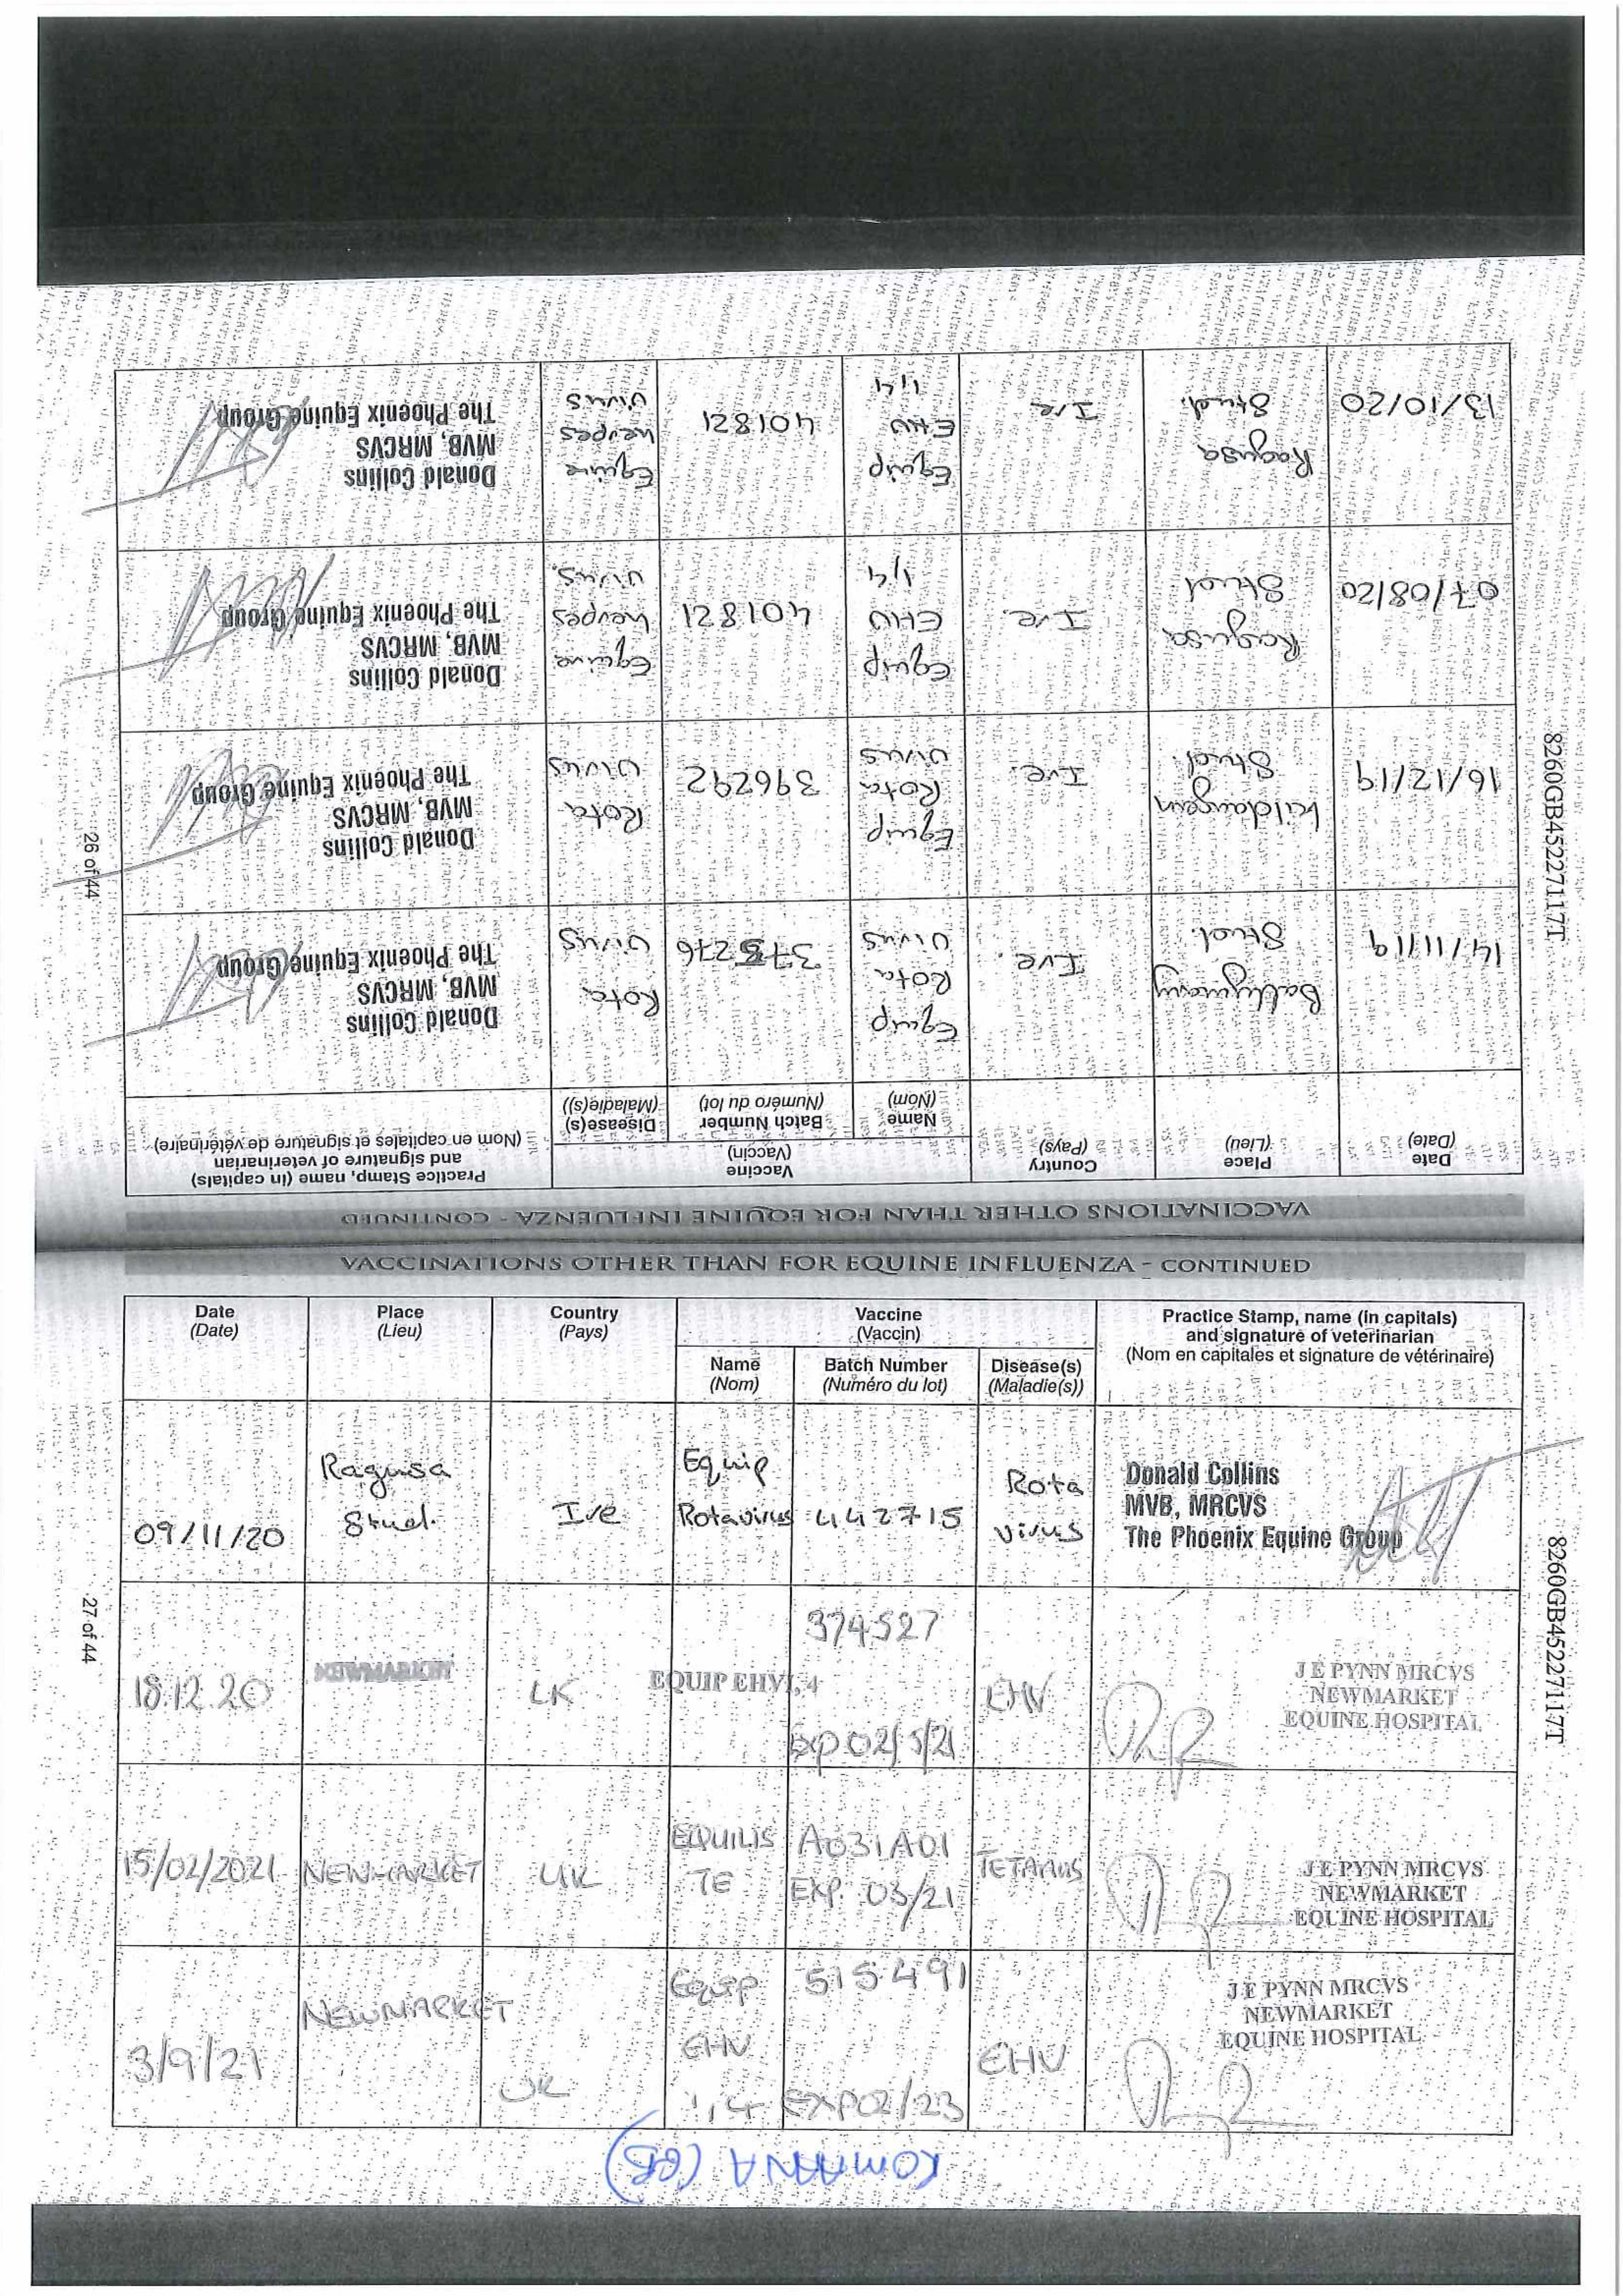 VACCINATIONS OTHER THAN FOR EQUINE INFLUENZA - CONTINUED
Date
(Date)
Place
(Lieu)
Country
(Pays)
Vaccine
(Vaccin)
Name
(Nom)
Batch Number
(Numéro du lot)
Disease(s)
(Maladie(s))
Practice Stamp, name (in capitals)
and signature of veterinarian
(Nom en capitales et signature de vétérinaire)
14/11/19
Stud.
Ire.
Equip
Rota
Virus
Rota
Virus
Donald Collins
MVB, MRCVS
The Phoenix Equine Group
16/12/19
Kildangan
Stud.
Ire.
Equip
Rota
Virus
396292
Rota
Virus
Donald Collins
MVB, MRCVS
The Phoenix Equine Group
07/08/20
Ragusa
Stud
Ire.
Equip
EHV
1,4
401821
Equine
herpes
virus.
Donald Collins
MVB, MRCVS
The Phoenix Equine Group
13/10/20
Ragusa
Stud.
Ire
Equip
EHV
1,4
401821
Equine
herpes
virus
Donald Collins
MVB, MRCVS
The Phoenix Equine Group
26 of 44
8260GB45227117T
VACCINATIONS OTHER THAN FOR EQUINE INFLUENZA - CONTINUED
Date
(Date)
Place
(Lieu)
Country
(Pays)
Vaccine
(Vaccin)
Name
(Nom)
Batch Number
(Numéro du lot)
Disease(s)
(Maladie(s))
Practice Stamp, name (in capitals)
and signature of veterinarian
(Nom en capitales et signature de vétérinaire)
09/11/20
Ragusa
Stud.
Ire
Equip
Rotavirus
442715
Rota
virus
Donald Collins
MVB, MRCVS
The Phoenix Equine Group
18.12.20
NEWMARKET
UK
EQUIP EHV1,4
374527
EHV
J E PYNN MRCVS
NEWMARKET
EQUINE HOSPITAL
15/02/2021
NEWMARKET
UK
EQUILIS
TE
A031A01
EXP. 03/21
TETANUS
J E PYNN MRCVS
NEWMARKET
EQUINE HOSPITAL
3/9/21
NEWMARKET
UK
Equip
EHV
1,4
515491
EXP02/23
EHV
J E PYNN MRCVS
NEWMARKET
EQUINE HOSPITAL
27 of 44
8260GB45227117T
(GB)